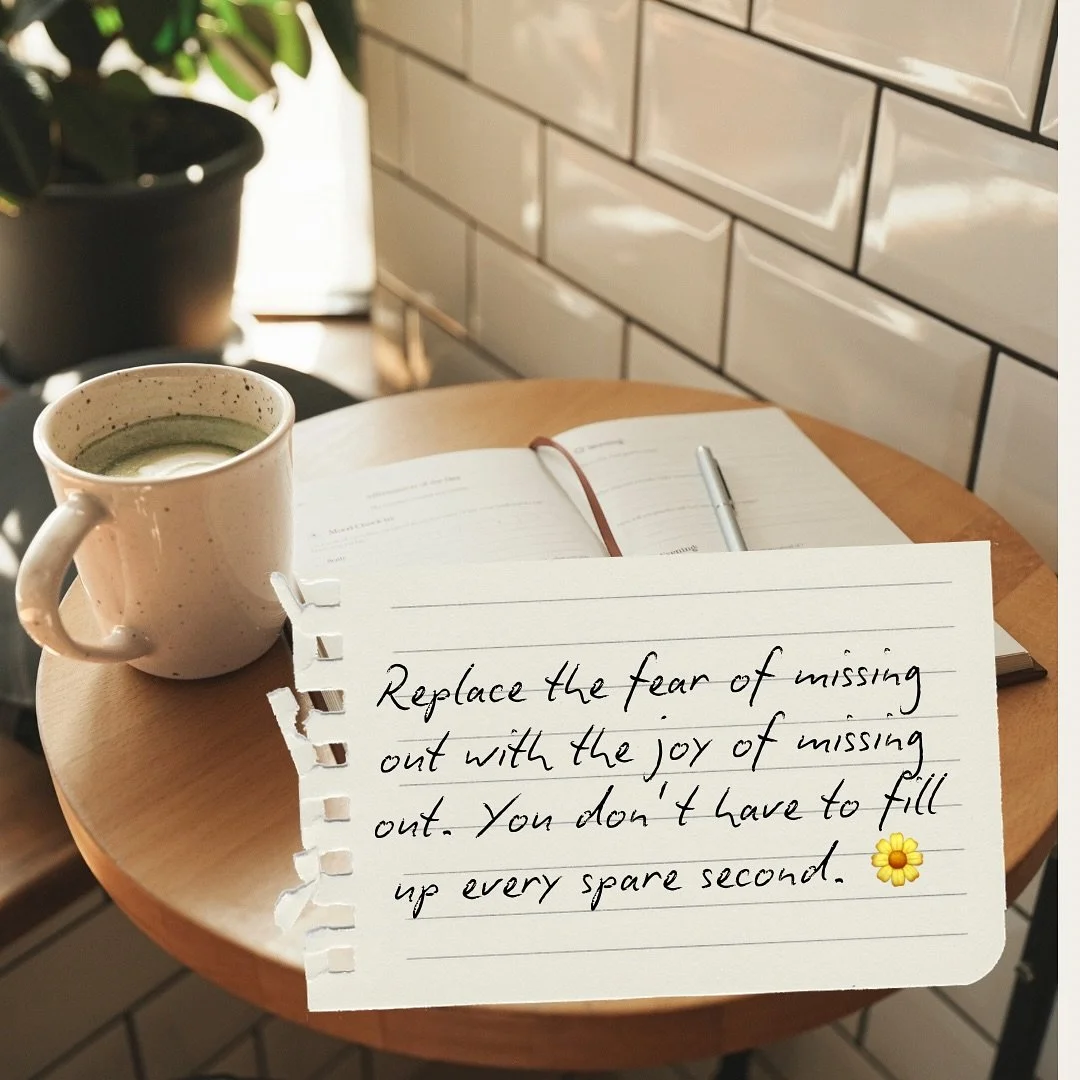 Mood Check-In
Replace the fear of missing
out with the joy of missing
out. You don't have to fill
up every spare second. 🌼